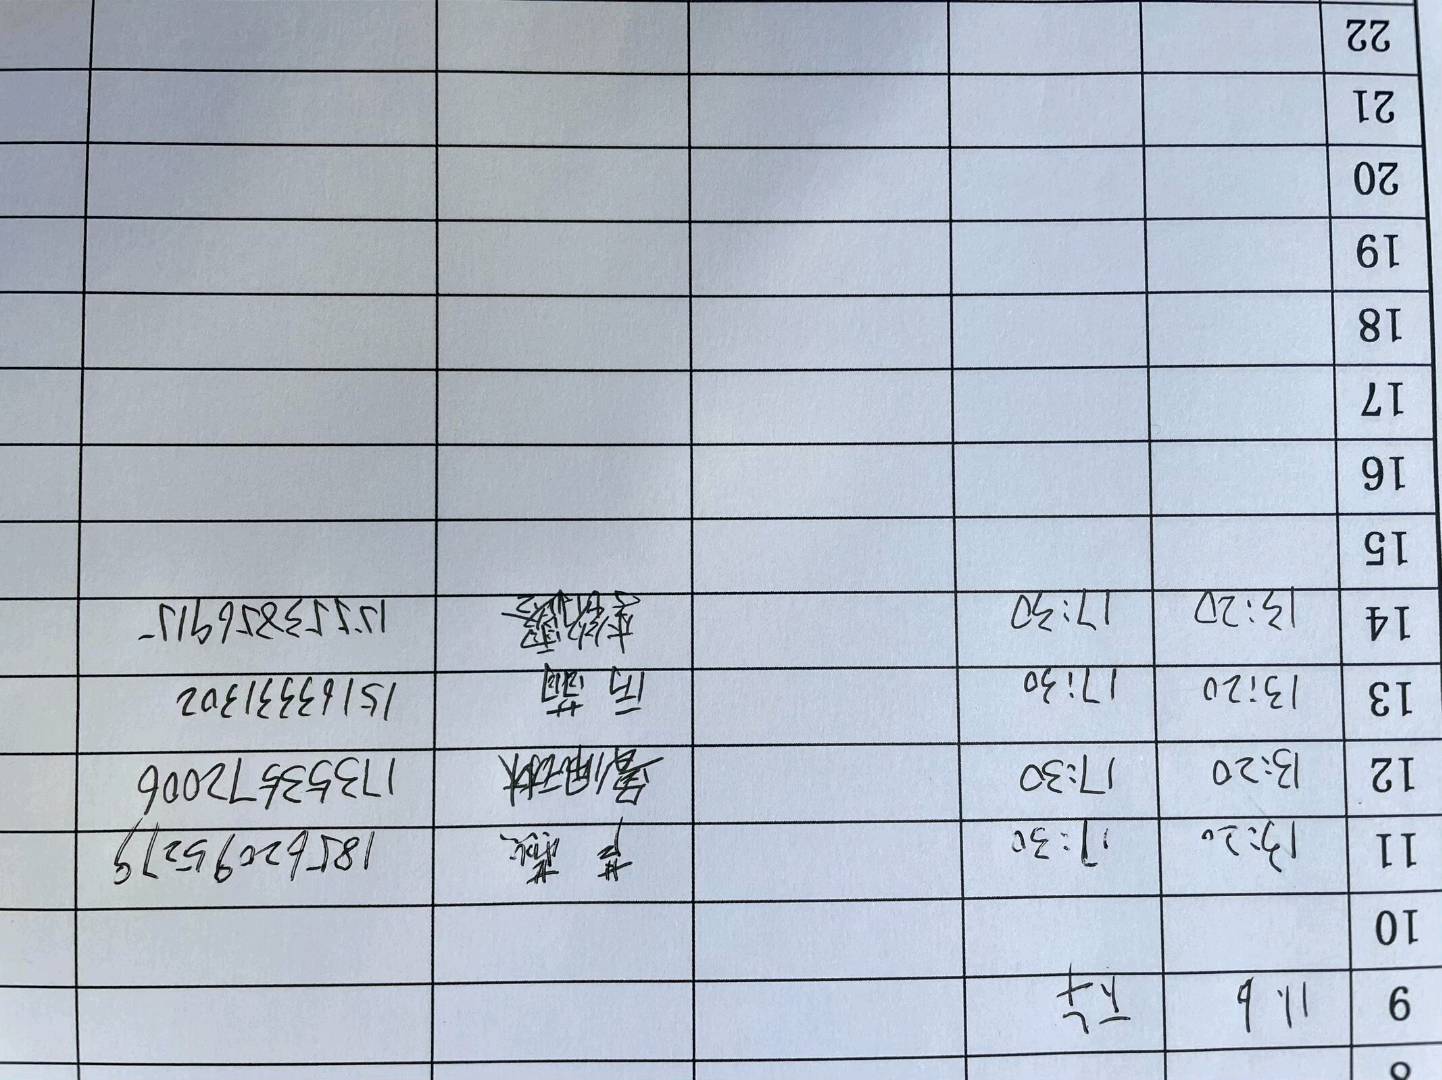 9 11.6 下午
10
11 13:20 17:30 18562095279
12 13:20 17:30 17353672006
13 13:20 17:30 15163331302
14 13:20 17:30 15553856915
15
16
17
18
19
20
21
22